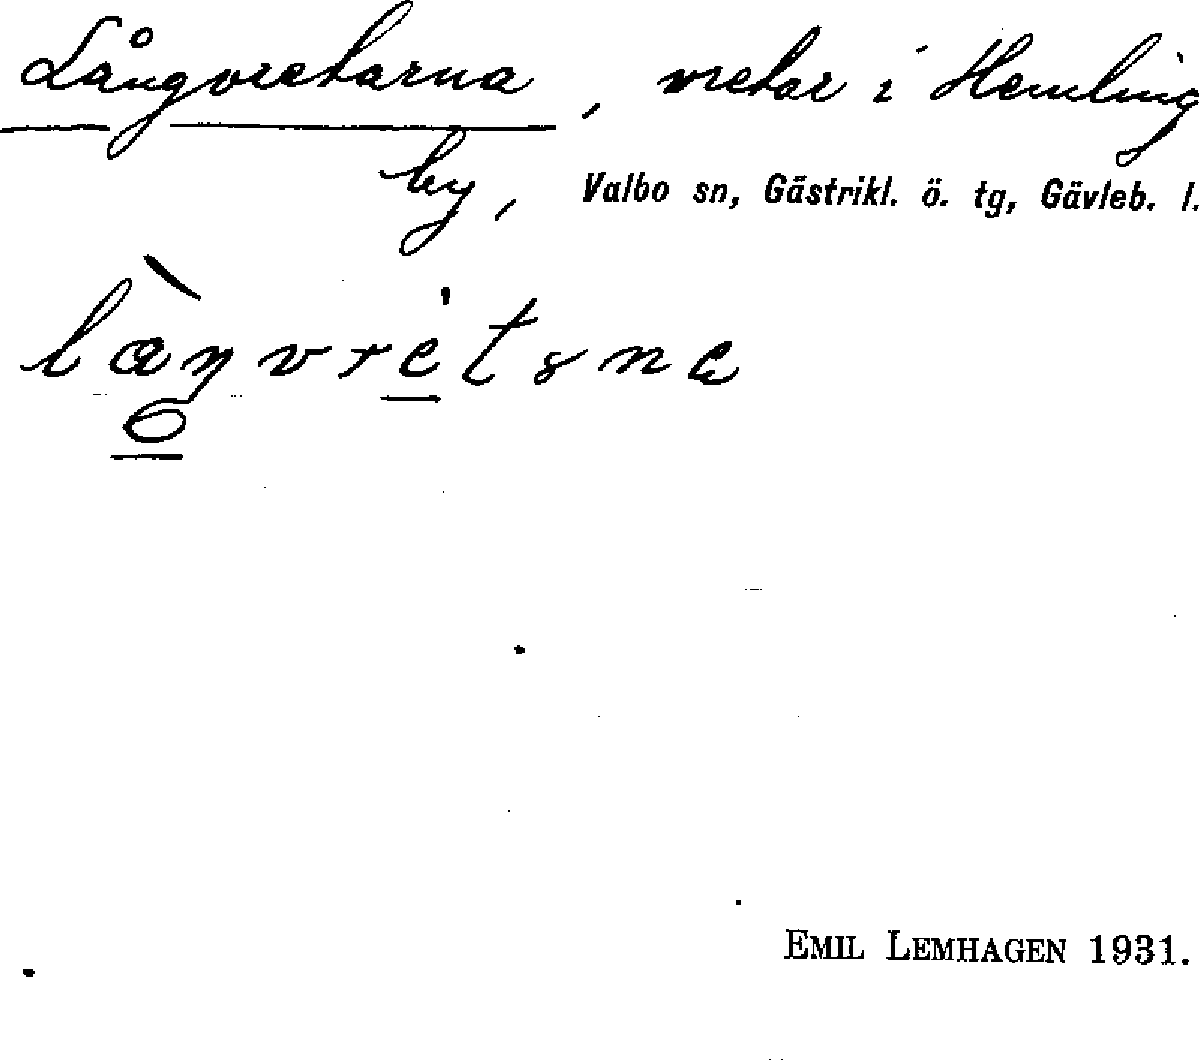 Långvretarna, vretar i Hemling
by, Valbo sn, Gästrikl. ö. tg, Gävleb. l.
EMIL LEMHAGEN 1931.